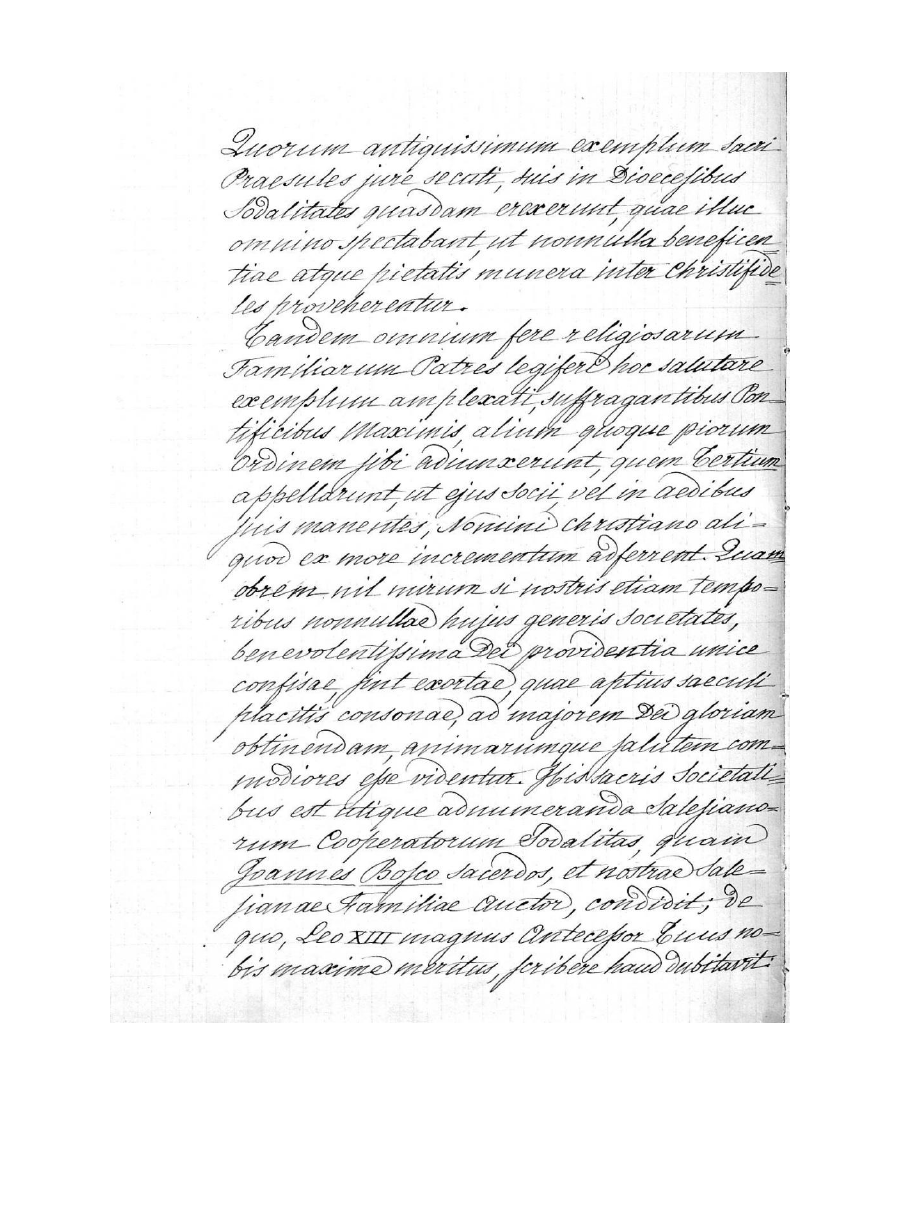 Quorum antiquissimum exemplum Sacri
Praesules jure secuti, suis in Dioecesibus
Sodalitates quasdam erexerunt, quae illuc
omnino spectabant, ut nonnulla beneficen
tiae atque pietatis munera inter Christifide=
les proveherentur.
Tandem omnium fere religiosarum
Familiarum Patres legiferi hoc salutare
exemplum amplexati, suffragantibus Pon=
tificibus Maximis, alium quoque piorum
Ordinem sibi adiunxerunt, quem Tertium
appellarunt, ut ejus Socii, vel in aedibus
suis manentes, Nomini christiano ali=
quod ex more incrementum adferrent. Quam
obrem nil mirum si nostris etiam tempo=
ribus nonnullae hujus generis Societates,
benevolentissima Dei providentia unice
confisae, sint exortae, quae aptius saeculi
placitis consonae, ad majorem Dei gloriam
obtinendam, animarumque salutem com=
modiores esse videntur. His sacris Societati=
bus est utique adnumeranda Salesiano=
rum Cooperatorum Sodalitas, quam
Joannes Bosco Sacerdos, et nostrae Sale=
sianae Familiae Auctor, condidit; de
quo, Leo XIII magnus Antecessor Tuus no=
bis maxime meritus, scribere haud dubitavit: